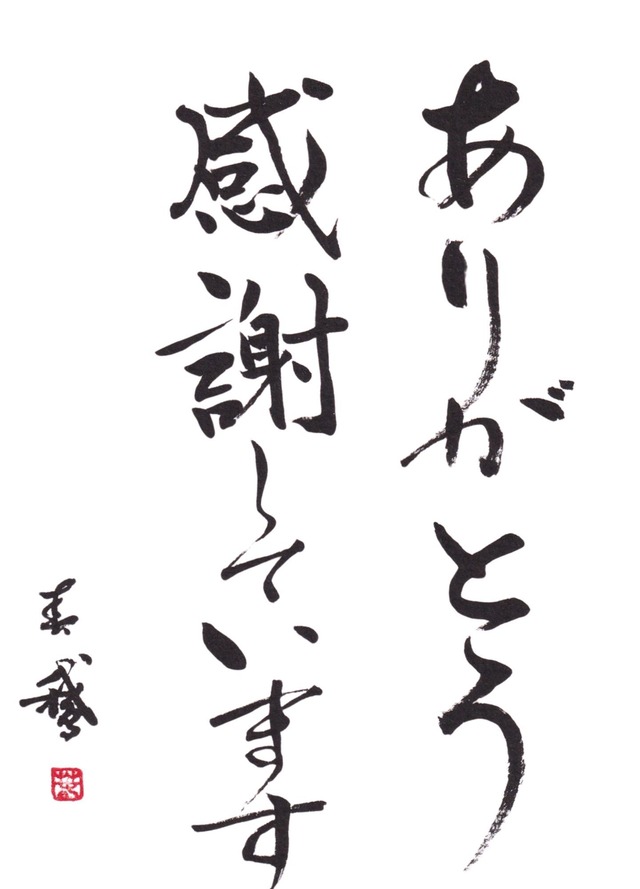 ありがとう
感謝しています